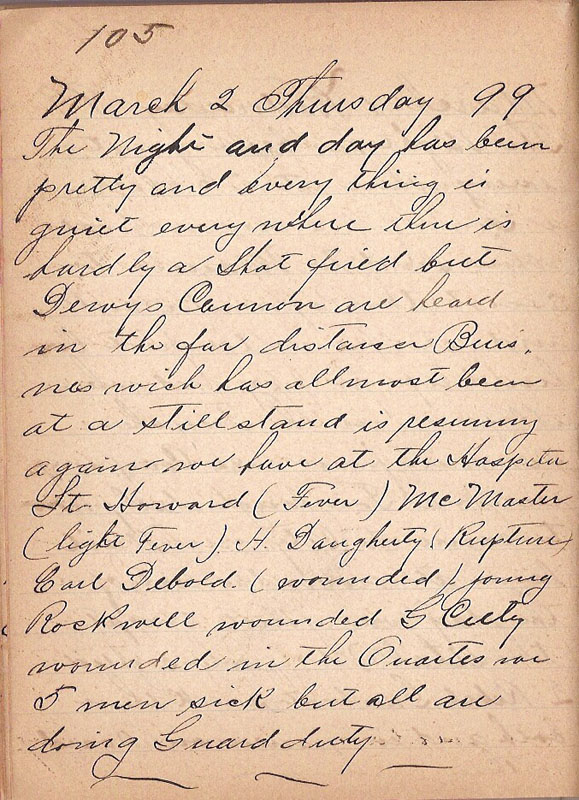 105
March 2 Thursday 99
The Night and day has been
pretty and every thing is
quiet everywhere ther is
hardly a Shot fired but
Dewys Cannon are heard
in the far distance Buis.
nes wich has allmost been
at a still stand is resuming
again we have at the Hospita
Lt. Howard (Fever) Mc Master
(light Fever) H. Daugherty (Rupture)
Carl Debold. (wounded) young
Rockwell wounded G Cuty
wounded in the Quartes we
5 men sick but all are
doing Guard duty